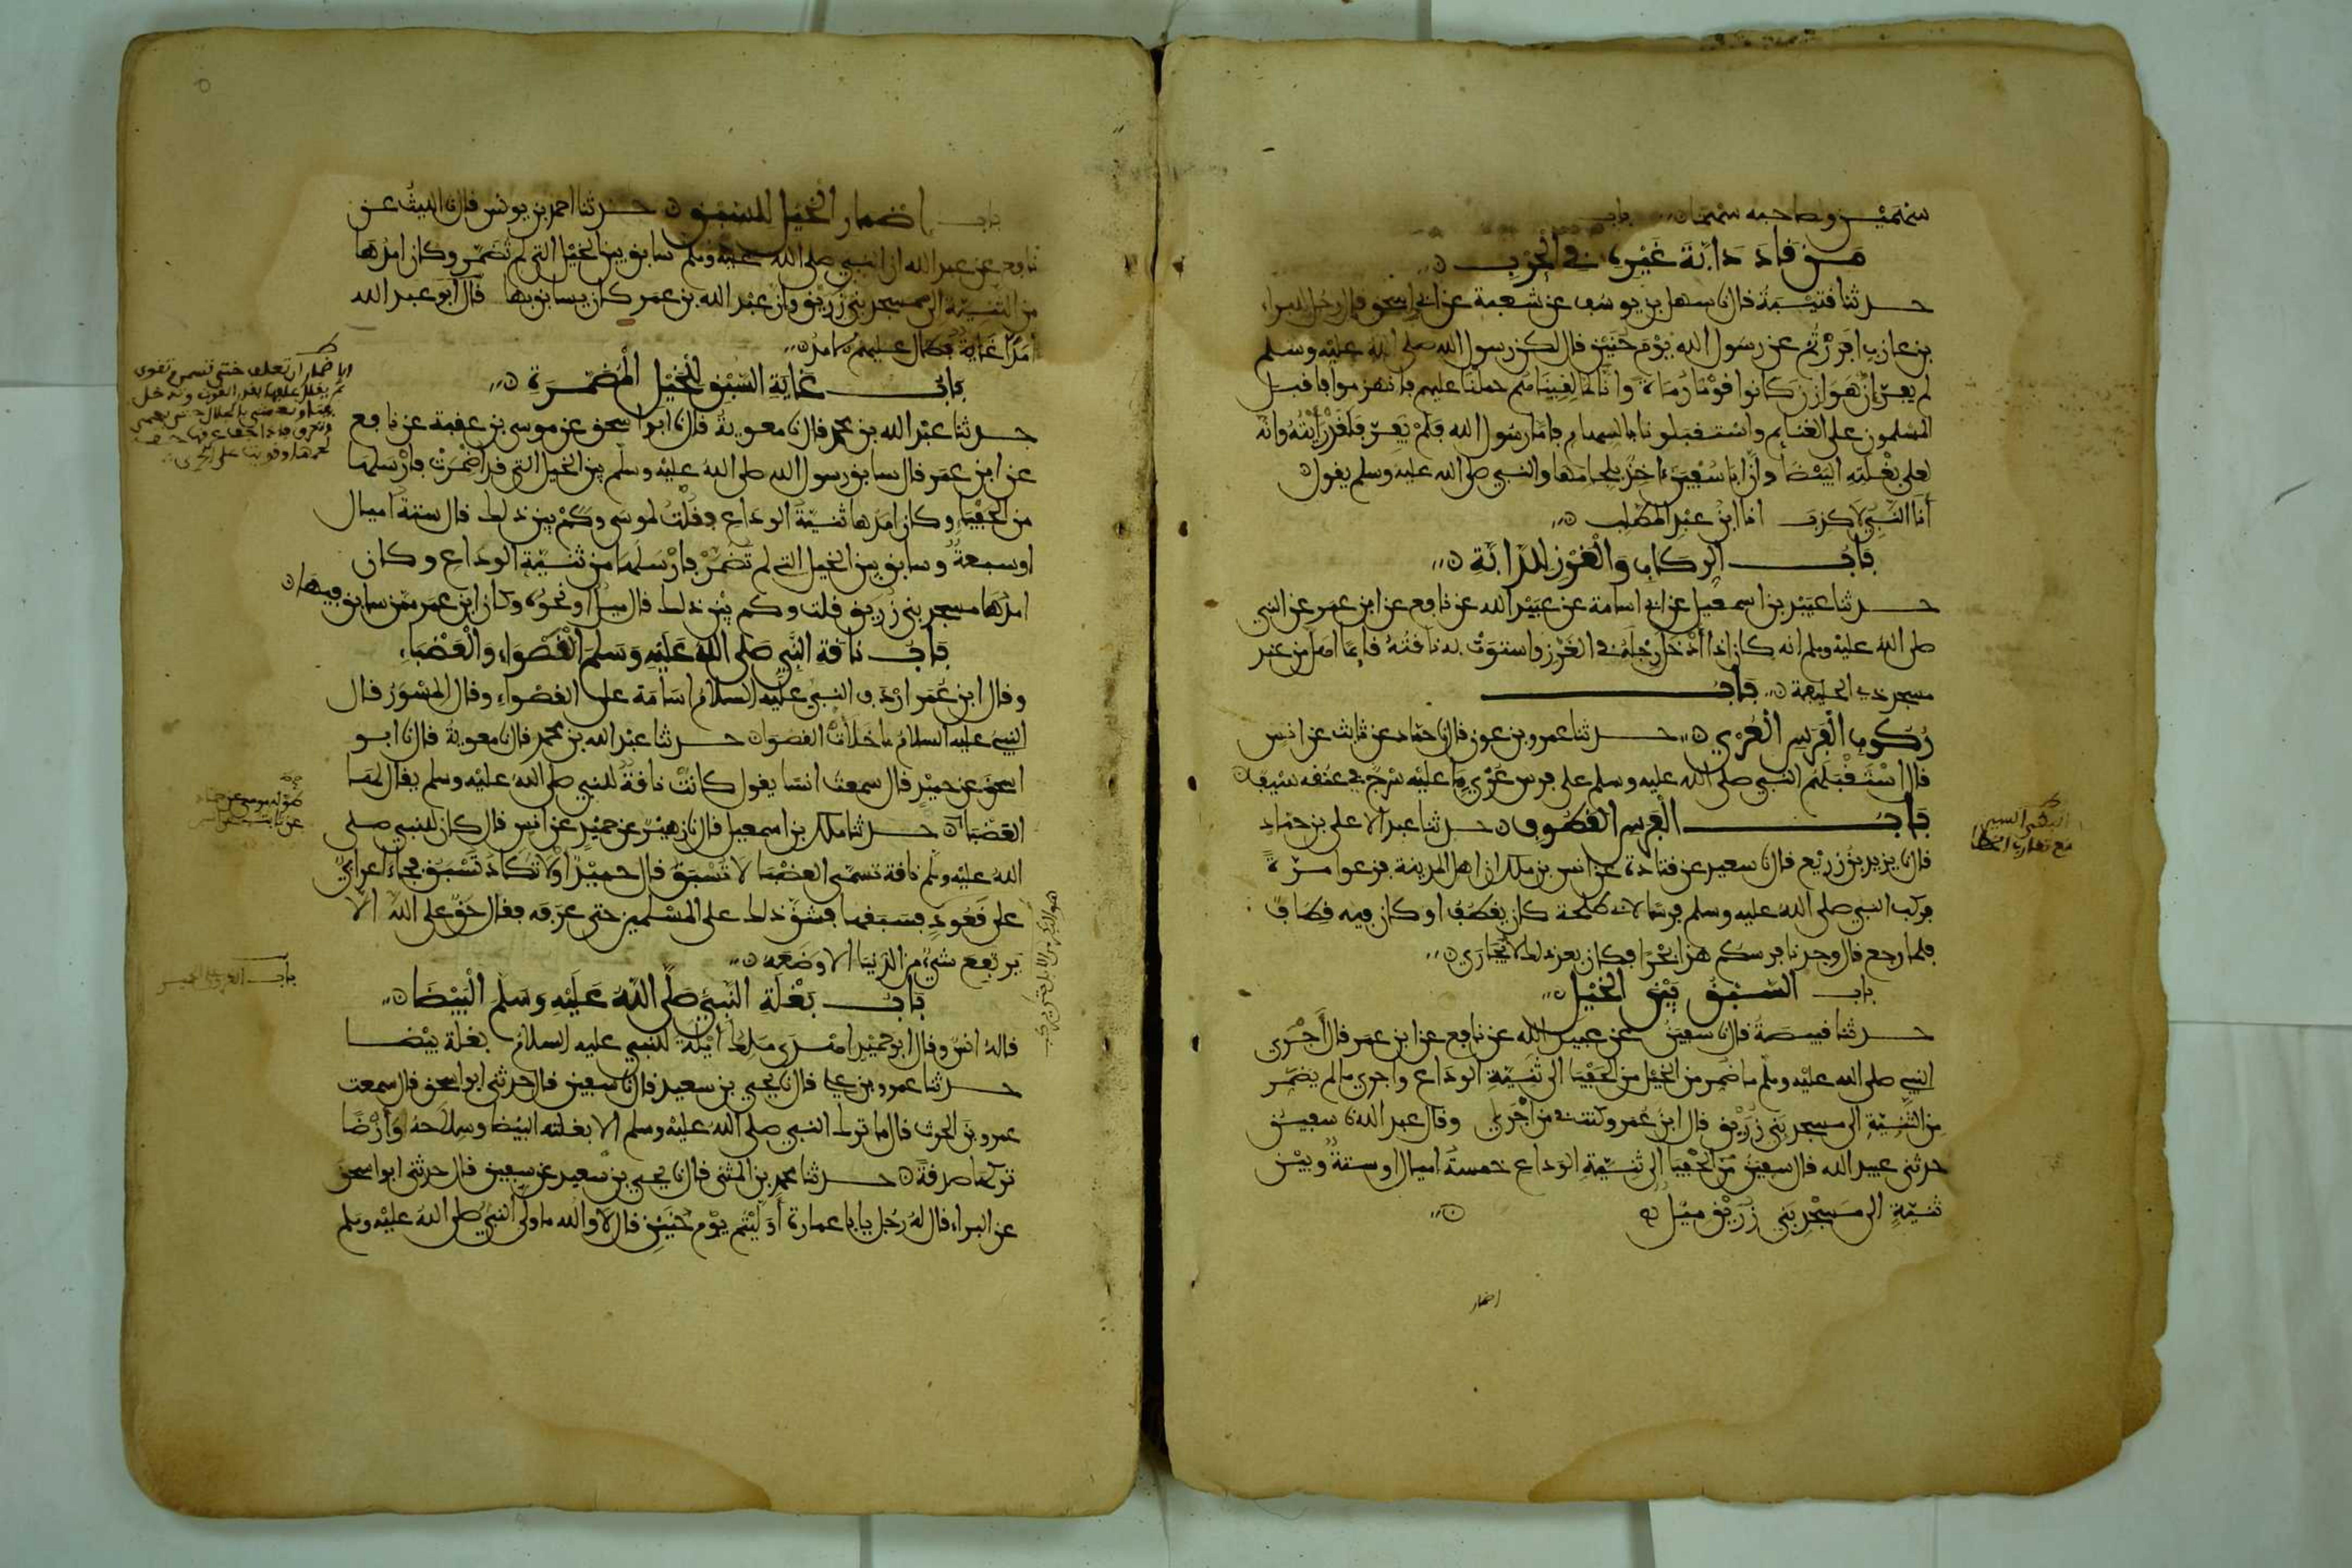 سهمين وصاحبه سهما باب
من قاد دابة غيره في الحرب
حدثنا قتيبة قال نا سهل بن يوسف عن شعبة عن ابي اسحق قال رجل للبراء
بن عازب افررتم عن رسول الله يوم حنين قال لكن رسول الله صلى الله عليه وسلم
لم يفر ان هوازن كانوا قوما رماة وانا لما لقيناهم حملنا عليهم فانهزموا فاقبل
المسلمون على الغنايم واستقبلونا بالسهام فاما رسول الله فلم يفر فلقد رايته وانه
لعلى بغلته البيضا وان ابا سفين اخذ بلجامها والنبي صلى الله عليه وسلم يقول
أنا النبي لا كذب انا ابن عبد المطلب
باب الركاب والغرز للدابة
حدثنا عبيد بن اسمعيل عن ابي اسامة عن عبيد الله عن نافع عن ابن عمر عن النبي
صلى الله عليه وسلم انه كان اذا أدخل رجله في الغرز واستوت به ناقته قايما اهل من عند
مسجد ذي الحليفة باب
ركوب الفرس العري حدثنا عمرو بن عون قال نا حماد عن ثابت عن انس
قال استقبلهم النبي صلى الله عليه وسلم على فرس عري ما عليه سرج في عنقه سيف
باب الفرس القطوف حدثنا عبد الاعلى بن حماد
قال نا يزيد بن زريع قال نا سعيد عن قتادة عن انس بن ملك ان اهل المدينة فزعوا مرة
فركب النبي صلى الله عليه وسلم فرسا لابي طلحة كان يقطف او كان فيه قطاف
فلما رجع قال وجدنا فرسكم هذا بحرا فكان بعد ذلك لا يجارى
باب السبق بين الخيل
حدثنا قبيصة قال نا سفين عن عبيد الله عن نافع عن ابن عمر قال أجرى
النبي صلى الله عليه وسلم ما ضمر من الخيل من الحفيا الى ثنية الوداع واجرى ما لم يضمر
من الثنية الى مسجد بني زريق قال ابن عمر وكنت في من اجرى وقال عبد الله نا سفين
حدثني عبيد الله قال سفين من الحفيا الى ثنية الوداع خمسة اميال او ستة وبين
ثنية الى مسجد بني زريق ميل
اضمار
باب اضمار الخيل للسبق حدثنا احمد بن يونس قال نا الليث عن
نافع عن عبد الله ان النبي صلى الله عليه وسلم سابق بين الخيل التي لم تضمر وكان امدها
من الثنية الى مسجد بني زريق وان عبد الله بن عمر كان يسابق بها قال ابو عبد الله
امدا غاية فطال عليهم الامد
باب غاية السبق للخيل المضمرة
حدثنا عبد الله بن محمد قال نا معوية قال نا ابو اسحق عن موسى بن عقبة عن نافع
عن ابن عمر قال سابق رسول الله صلى الله عليه وسلم بين الخيل التي قد اضمرت فارسلها
من الحفياء وكان امدها ثنية الوداع فقلت لموسى وكم بين ذلك قال ستة اميال
او سبعة وسابق بين الخيل التي لم تضمر فارسلها من ثنية الوداع وكان
امدها مسجد بني زريق قلت وكم بين ذلك قال ميل او نحوه وكان ابن عمر ممن سابق فيها
باب ناقة النبي صلى الله عليه وسلم القصواء والعضباء
وقال ابن عمر اردف النبي عليه السلام اسامة على القصواء وقال المسور قال
النبي عليه السلام ما خلأت القصوا حدثنا عبد الله بن محمد قال نا معوية قال نا ابو
اسحق عن حميد قال سمعت انسا يقول كانت ناقة للنبي صلى الله عليه وسلم يقال لها
العضبا حدثنا ملك بن اسمعيل قال نا زهير عن حميد عن انس قال كان للنبي صلى
الله عليه وسلم ناقة تسمى العضبا لا تسبق قال حميد او لا تكاد تسبق فجاء اعرابي
على قعود فسبقها فشق ذلك على المسلمين حتى عرفه فقال حق على الله الا
يرتفع شيء من الدنيا الا وضعه
باب بغلة النبي صلى الله عليه وسلم البيضا
قاله انس وقال ابو حميد اهدى ملك أيلة للنبي عليه السلام بغلة بيضا
حدثنا عمرو بن علي قال نا يحيى بن سعيد قال نا سفين قال حدثني ابو اسحق قال سمعت
عمرو بن الحرث قال ما ترك النبي صلى الله عليه وسلم الا بغلته البيضا وسلاحه وأرضا
تركها صدقة حدثنا محمد بن المثنى قال نا يحيى بن سعيد عن سفين قال حدثني ابو اسحق
عن البراء قال له رجل يابا عمارة أوليتم يوم حنين قال لا والله ما ولى النبي صلى الله عليه وسلم